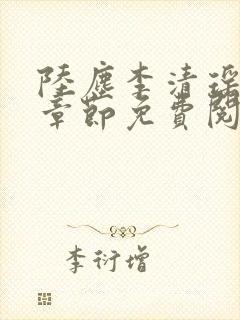 陸塵李清瑤
章節免費閱
李衍增